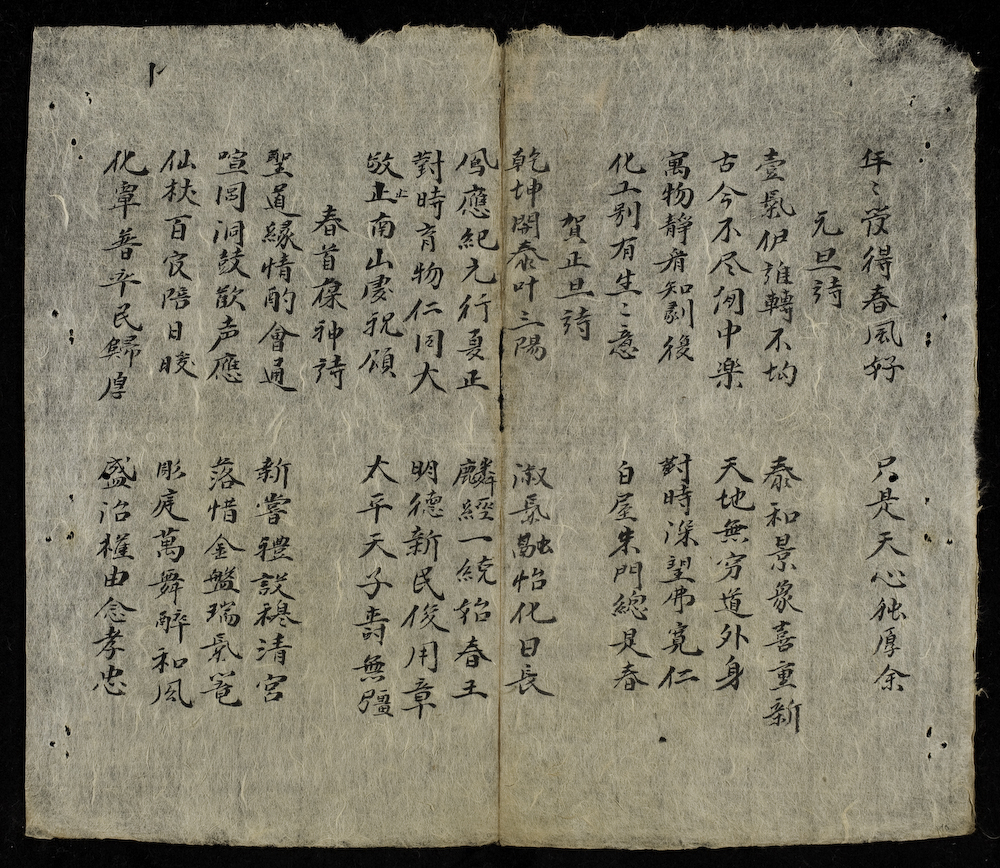 年〻得春風好　只是天心独厚余
元旦詩
壹氣炉誰轉不均　泰和景象喜重新
古今不尽閒中楽　天地無穷道外身
寓物静看知剥後　對時深望弗寬仁
化工別有生〻意　白屋朱門總是春
賀正旦詩
乾坤開泰叶三陽　淑氣融怡化日長
鳳應紀元行夏正　麟經一統始春王
對時育物仁同大　明德新民俊用章
敬止南山虔祝頌　太平天子壽無疆
春首葆神詩
聖道縁情酌會通　新嘗禮設穆清宮
喧洞鼓歓声應　落惜金盤瑞氣篭
仙杖百官陪日晙　彤庭萬舞醉和風
化覃普率民歸厚　盛治權由念孝忠